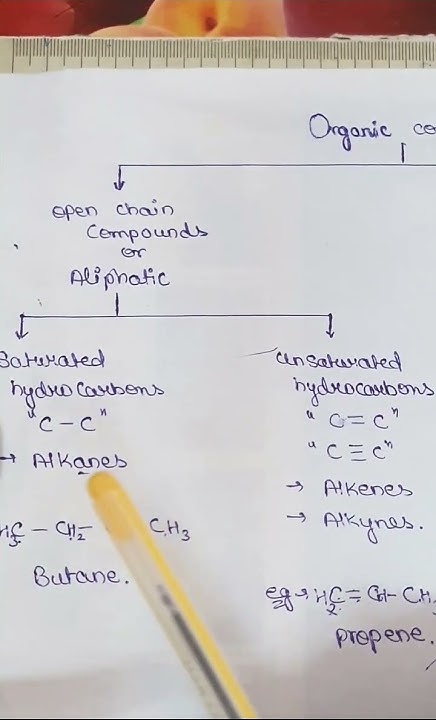 Organic co
Open chain
Compounds
or
Aliphatic
Saturated
hydrocarbons
"C – C"
→ Alkanes
H₃C – CH₂ – CH₃
Butane.
Unsaturated
hydrocarbons
"C = C"
"C ≡ C"
→ Alkenes
→ Alkynes.
eg → H₂C = CH – CH
propene.